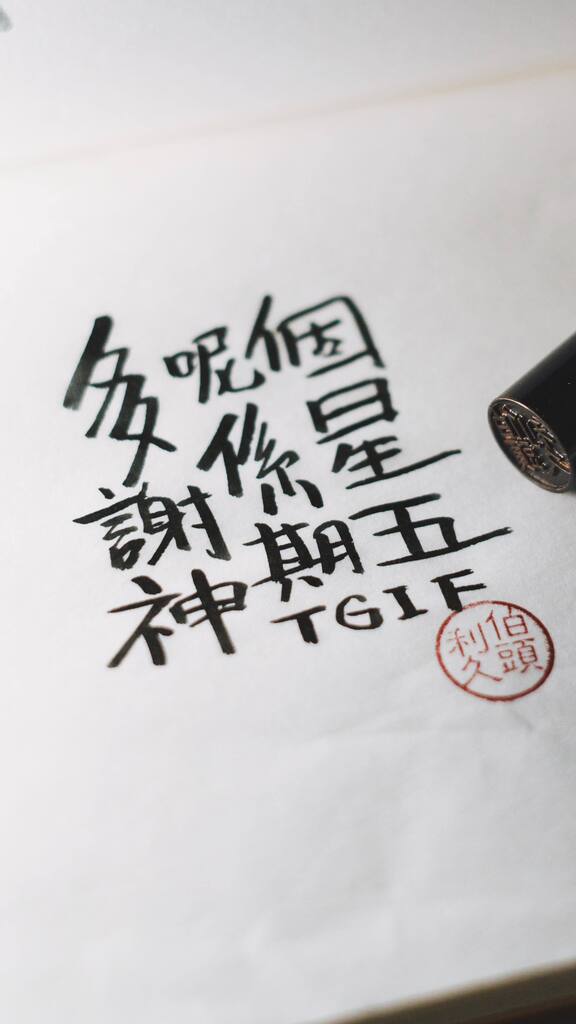 多謝神
呢個
係星
期五
TGIF
伯頭
利久